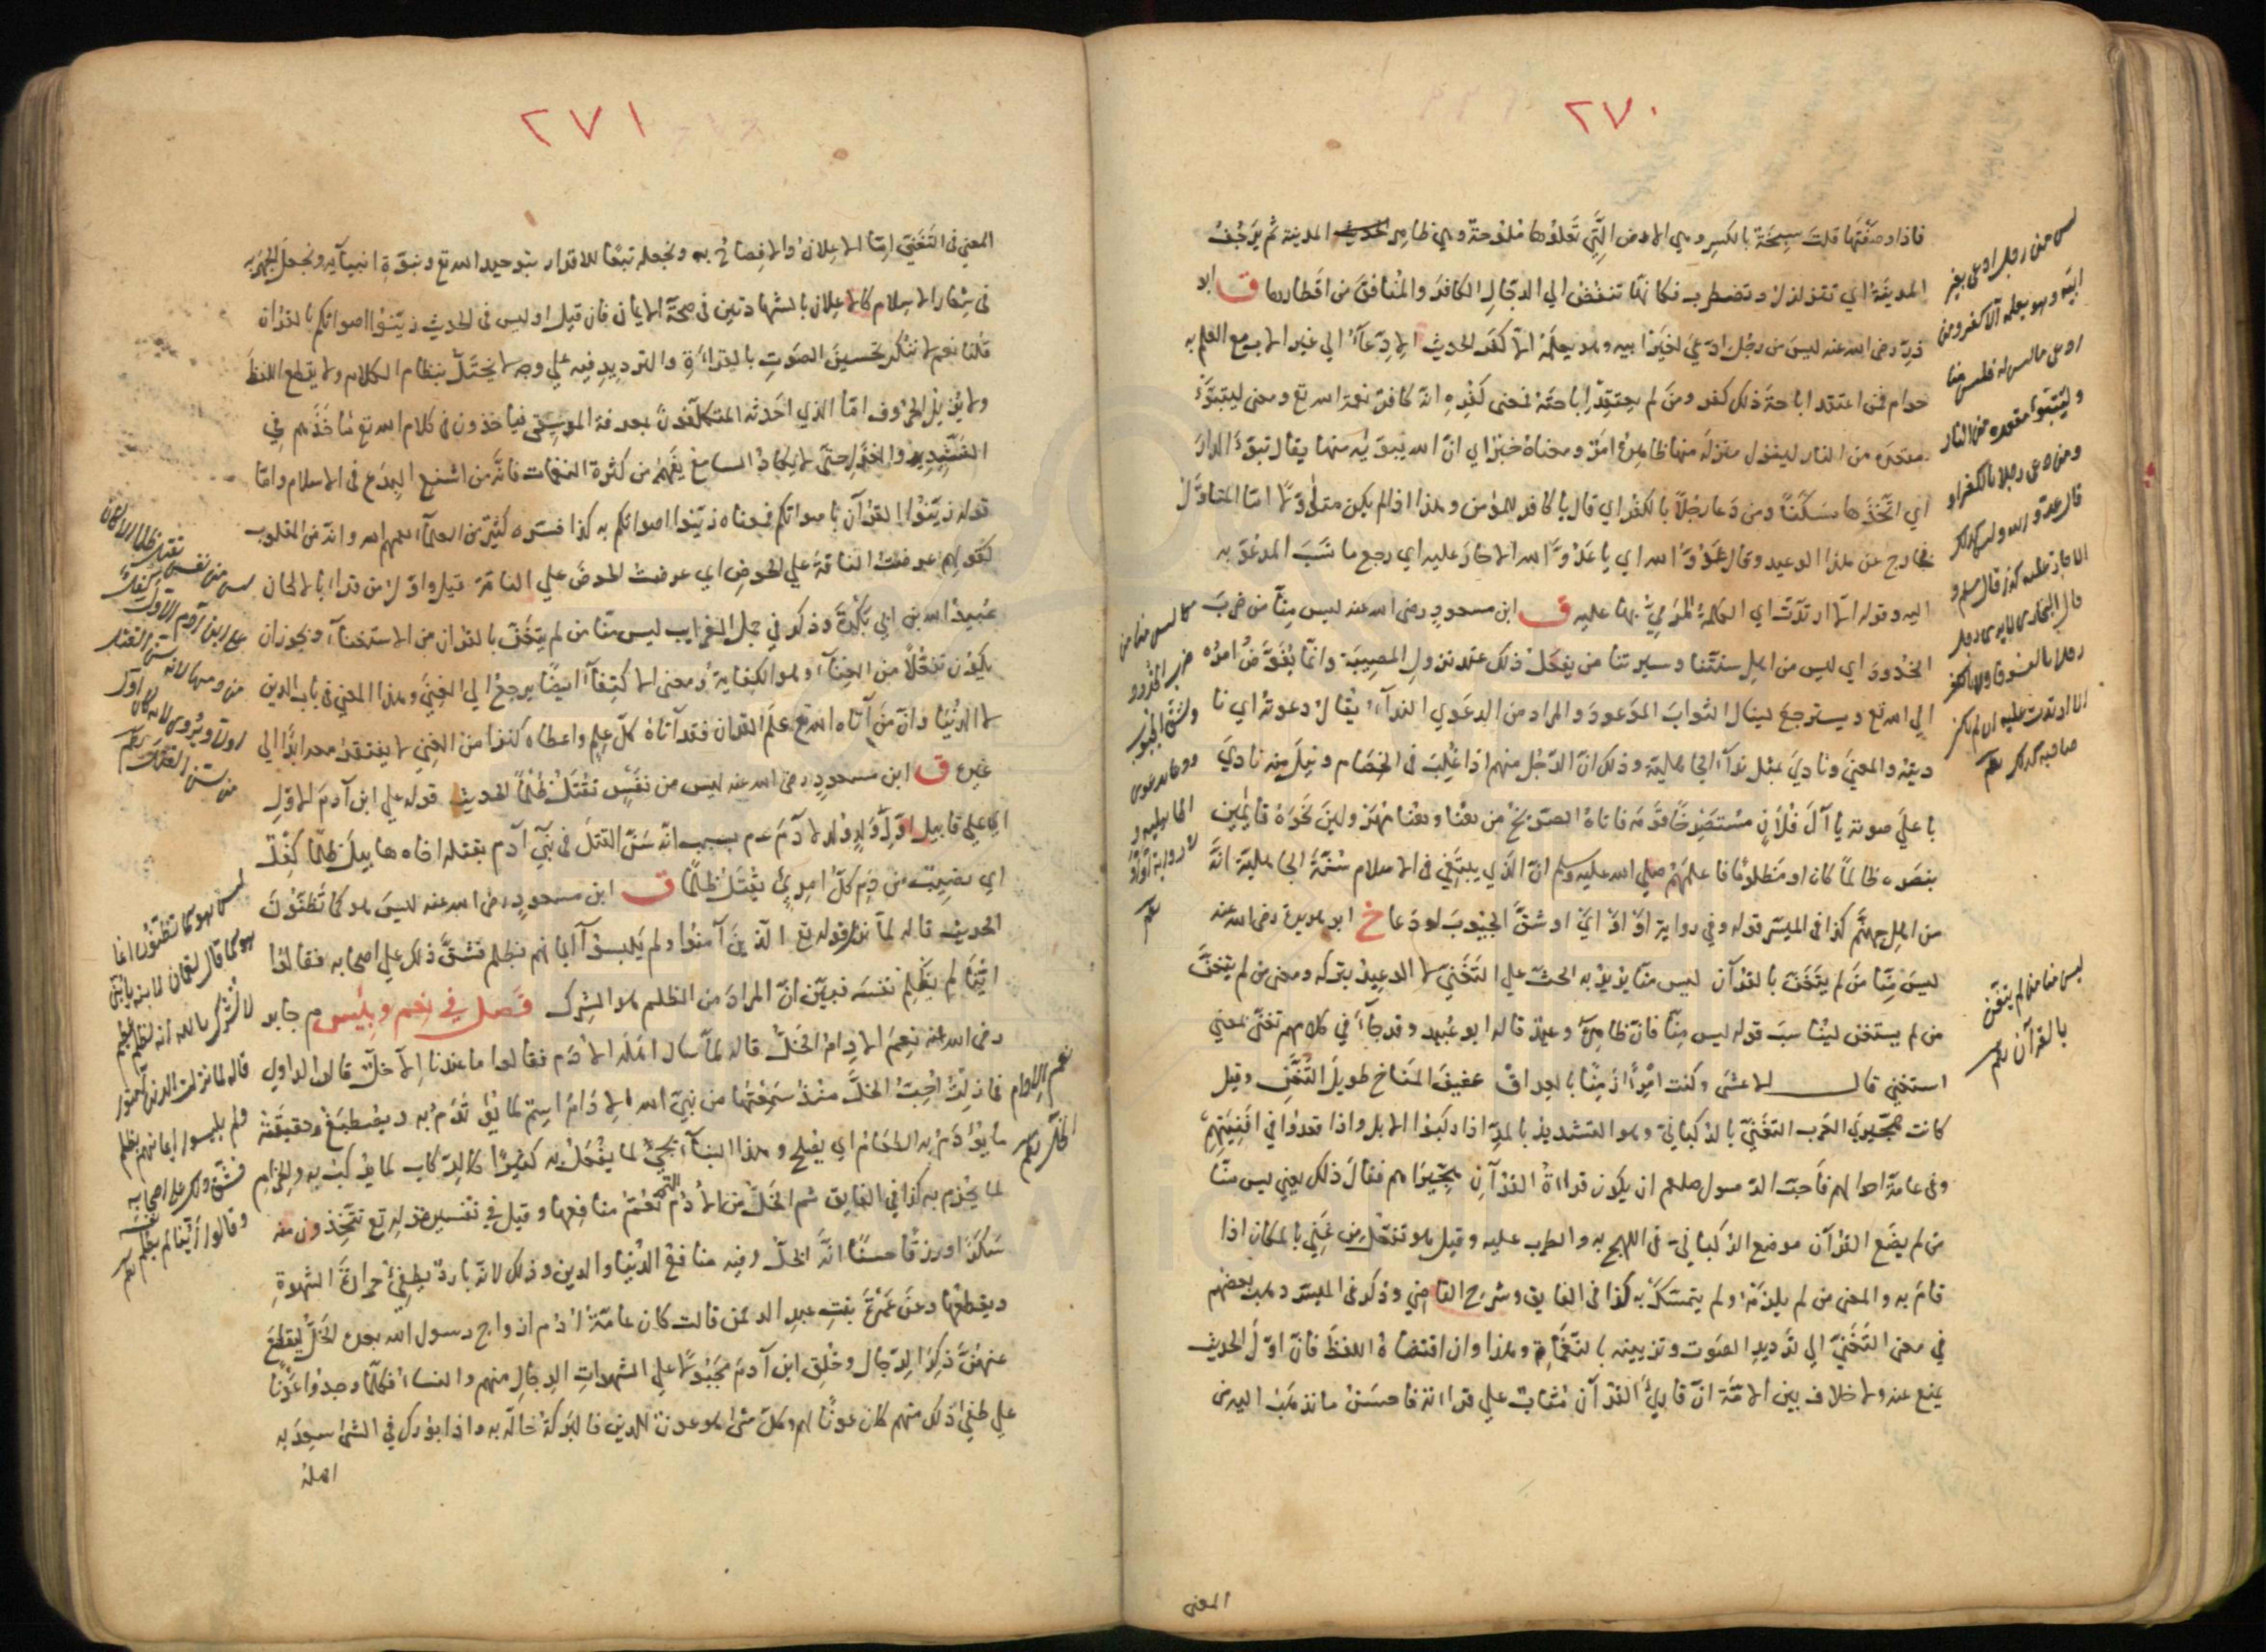 ٢٧٠
فاذا وصفتها قلت سبِخَة بالكسر وهي الارض التي تعلوها ملوحة وهي ظاهر المدينة ثم يرجف
المدينة اي تتزلزل وتضطرب فكانها تنفض الي الدجال الكافر والمنافق من اقطارها ق ابو
ذر رضي الله عنه ليس من رجل ادعي لغير ابيه وهو يعلمه الا كفر الحديث الادعاء الي غير الاب مع العلم به
حرام فمن اعتقد اباحة ذلك كفر ومن لم يعتقد اباحته فمعني كفره انه كافر نعمة الله تع ومعني ليتبوّء
مقعده من النار لينزل منزله منها ظاهره امر ومعناه خبر اي ان الله يبوّئه منها يقال تبوّء الدار
اي اتخذها سكنًا ومن دعا رجلًا بالكفر اي قال يا كافر للمؤمن وهذا اذا لم يكن متاولًا امّا المتاول
فخارج عن هذا الوعيد وقال عدوّ الله اي يا عدوّ الله الا حار عليه اي رجع ما نسب المدعو به
اليه وقوله الا ارتدّت اي الكلمة المرميّ بها عليه ق ابن مسعود رضي الله عنه ليس منّا من ضرب
الخدود اي ليس من اهل سنتنا وسيرتنا من يفعل ذلك عند نزول المصيبة وانما يفوّض امره
الي الله تع ويسترجع لينال الثواب الموعود والمراد من الدعوي النداء يقال دعوته اي نا
ديته والمعني ونادي بمثل نداء الجاهلية وذلك ان الرجل منهم اذا غلب في الخصام ونيل منه نادي
با علي صوته يا آل فلان مستصرخًا قومه فاتاه الصريخ من هنا وهنا مهتزولين نحوه قايمين
بنصره ظالمًا كان او مظلومًا فاعلمهم صلي الله عليه وسلم ان الذي يبتغي في الاسلام سنة الجاهلية انه
من اهل جهنم كذا في الميسر قوله وفي رواية او او اي او شق الجيوب او دعا خ ابو هريرة رضي الله عنه
ليس منّا من لم يتغنّ بالقرآن ليس منا يريد به الحث علي التغنّي لا الوعيد بتركه ومعني من لم يتغنّ
من لم يستغن ليناسب قوله ليس منّا فان ظاهره وعيد قاله ابو عبيد وقد جاء في كلامهم تغنّي بمعني
استغني قال الاعشي وكنت امرءًا زمنًا بالعراق عفيف المناخ طويل التّغن وقيل
كانت هجّيري العرب التغنّي بالركباني وهو النشيد بالمدّ اذا ركبوا الابل واذا قعدوا في افنيتهم
وفي عامة احوالهم فاحب الرسول صلعم ان يكون قراءة القرآن هجّيراهم فقال ذلك يعني ليس منّا
من لم يضع القرآن موضع الركباني في اللهج به والطرب عليه وقيل هو تفعّل من غني بالمكان اذا
قام به والمعني من لم يلزمه ولم يتمسّك به كذا في الفايق وشرح القاضي وذكر في الميسر ذهب بعضهم
في معني التغنّي الي ترديد الصوت وتزيينه بالنغمات وهذا وان اقتضاه اللفظ فان اول الحديث
يمنع عنه ولا خلاف بين الامة ان قاريء القرآن مثاب علي قراءته فاحسن ما نذهب اليه في
المعني
ليس من رجل ادعي بغير
ابيه وهو يعلمه الا كفر ومن
ادعي ما ليس له فليس منا
وليتبوا مقعده من النار
ومن دعي رجلا بالكفر او
قال عدو الله وليس كذلك
الا حار عليه
ليس منا من
ضرب الخدود
وشق الجيوب
ودعا بدعوي
الجاهلية
ليس منا من لم يتغن
بالقرآن
٢٧١
المعني في التغنّي امّا الاعلان والافصاح به ونجعله تبعًا للاقرار بتوحيد الله تع ونبوّة انبيائه ونجعل الجهر به
في شعار الاسلام كالاعلان بالشهادتين في صحة الايمان فان قيل اوليس في الحديث زيّنوا اصواتكم بالقرآن
قلنا نعم لا ننكر تحسين الصوت بالقراءة والترديد فيه علي وجه لا يختلّ بنظام الكلام ولا يقطع اللفظ
ولا يزيل الحروف امّا الذي احدثه المتكلّفون بمعرفة الموسيقي فياخذون في كلام الله تع مأخذهم في
التشديد والغزل حتي لا يكاد السامع يفهم من كثرة النغمات فانه من اشنع البدع في الاسلام وامّا
قوله زيّنوا القرآن باصواتكم فمعناه زيّنوا اصواتكم به كذا فسره كثير من العلماء وانه من المقلوب
كقولهم عرضت الناقة علي الحوض اي عرضت الحوض علي الناقة قيل واول من قرا بالالحان
عبيد الله بن ابي بكرة وذكر في جمل الغرايب ليس منّا من لم يتغنّ بالقرآن من الاستغناء ويجوز ان
يكون تفعّلًا من الغناء وهو الكفاية ومعني الاكتفاء ايضًا يرجع الي الغني وهذا المعني في باب الدين
لا الدنيا وان من آتاه الله تع علم القرآن فقد آتاه كل علم واعطاه كنزا من الغني لا يفتقد معه ابدًا الي
غيره ق ابن مسعود رضي الله عنه ليس من نفس تقتل ظلمًا الحديث قوله علي ابن آدم الاول
اي علي قابيل اول ولد ولد لآدم عم بسبب انه سنّ القتل في بني آدم بقتله اخاه هابيل ظلمًا كفل
اي نصيب من دم كل امريء يقتل ظلمًا ق ابن مسعود رضي الله عنه ليس هو كما تظنّون
الحديث قاله لمّا نزل قوله تع الذين آمنوا ولم يلبسوا ايمانهم بظلم فشقّ ذلك علي اصحابه فقالوا
ايّنا لم يظلم نفسه فبيّن ان المراد من الظلم هو الشرك فصل في نعم وبئس م جابر
رضي الله عنه نعم الادام الخلّ قاله لمّا سال اهله الادم فقالوا ما عندنا الا خلّ قال الراوي
فما زلت احبّ الخلّ منذ سمعتها من نبيّ الله الادام اسم لما يؤتدم به ويصطبغ وحقيقته
ما يؤدم به الطعام اي يصلح وهذا البناء يجيء لما يفعل به كثيرًا كالركاب لما يركب به والحزام
لما يحزم به كذا في الفايق ثم الخلّ من الادم التي تعمّ منافعها وقيل في تفسير قوله تع تتخذون منه
سكرًا ورزقًا حسنًا انه الخلّ وفيه منافع الدنيا والدين وذلك لانه بارد يطفئ حرارة الشهوة
ويقطعها وعن عمرة بنت عبد الرحمن قالت كان عامة ادم ازواج رسول الله بعده الخل ليقطع
عنهنّ ذكر الرجال وخلق ابن آدم مجبولًا علي الشهوات الرجال منهم والنساء فكلما وجدوا عونًا
علي طفئ ذلك منهم كان عونًا لهم وكل شيء هو عون للدين فالبركة خالة به واذا بورك في الشيء سعد به
اهله
ليس من نفس تقتل ظلما الا كان
علي ابن آدم الاول كفل
من دمها لانه سن القتل
اولا ويروي لانه كان اول
من سن القتل
ليس هو كما تظنون انما
هو كما قال لقمان لابنه يا بني
لا تشرك بالله ان الشرك لظلم عظيم
قاله لما نزلت الذين آمنوا
ولم يلبسوا ايمانهم بظلم
فشق ذلك علي اصحابه
وقالوا اينا لم يظلم نفسه
نعم الادام
الخل